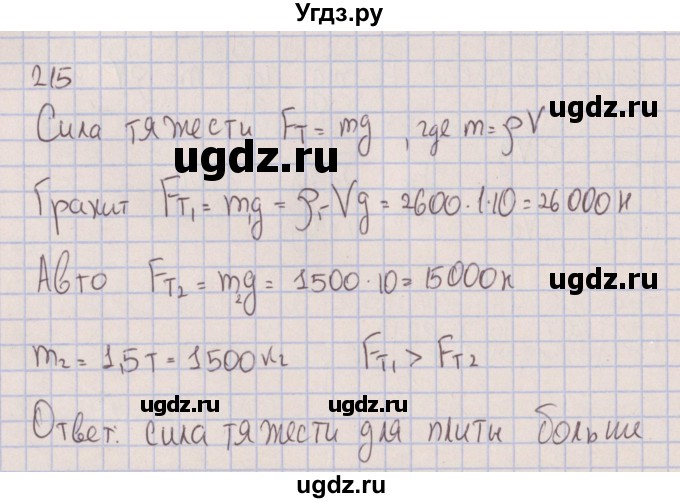 Угдз.ру
215
Сила тяжести Fт = mg, где m = ρV
ugdz.ru
ugdz.ru
Гранит Fт₁ = m₁g = ρ₁Vg = 2600·1·10 = 26000н
Авто Fт₂ = m₂g = 1500·10 = 15000н
ugdz.ru
m₂ = 1,5т = 1500кг Fт₁ > Fт₂
ugdz.ru ugdz.ru
Ответ: сила тяжести для плиты больше
ugdz.ru